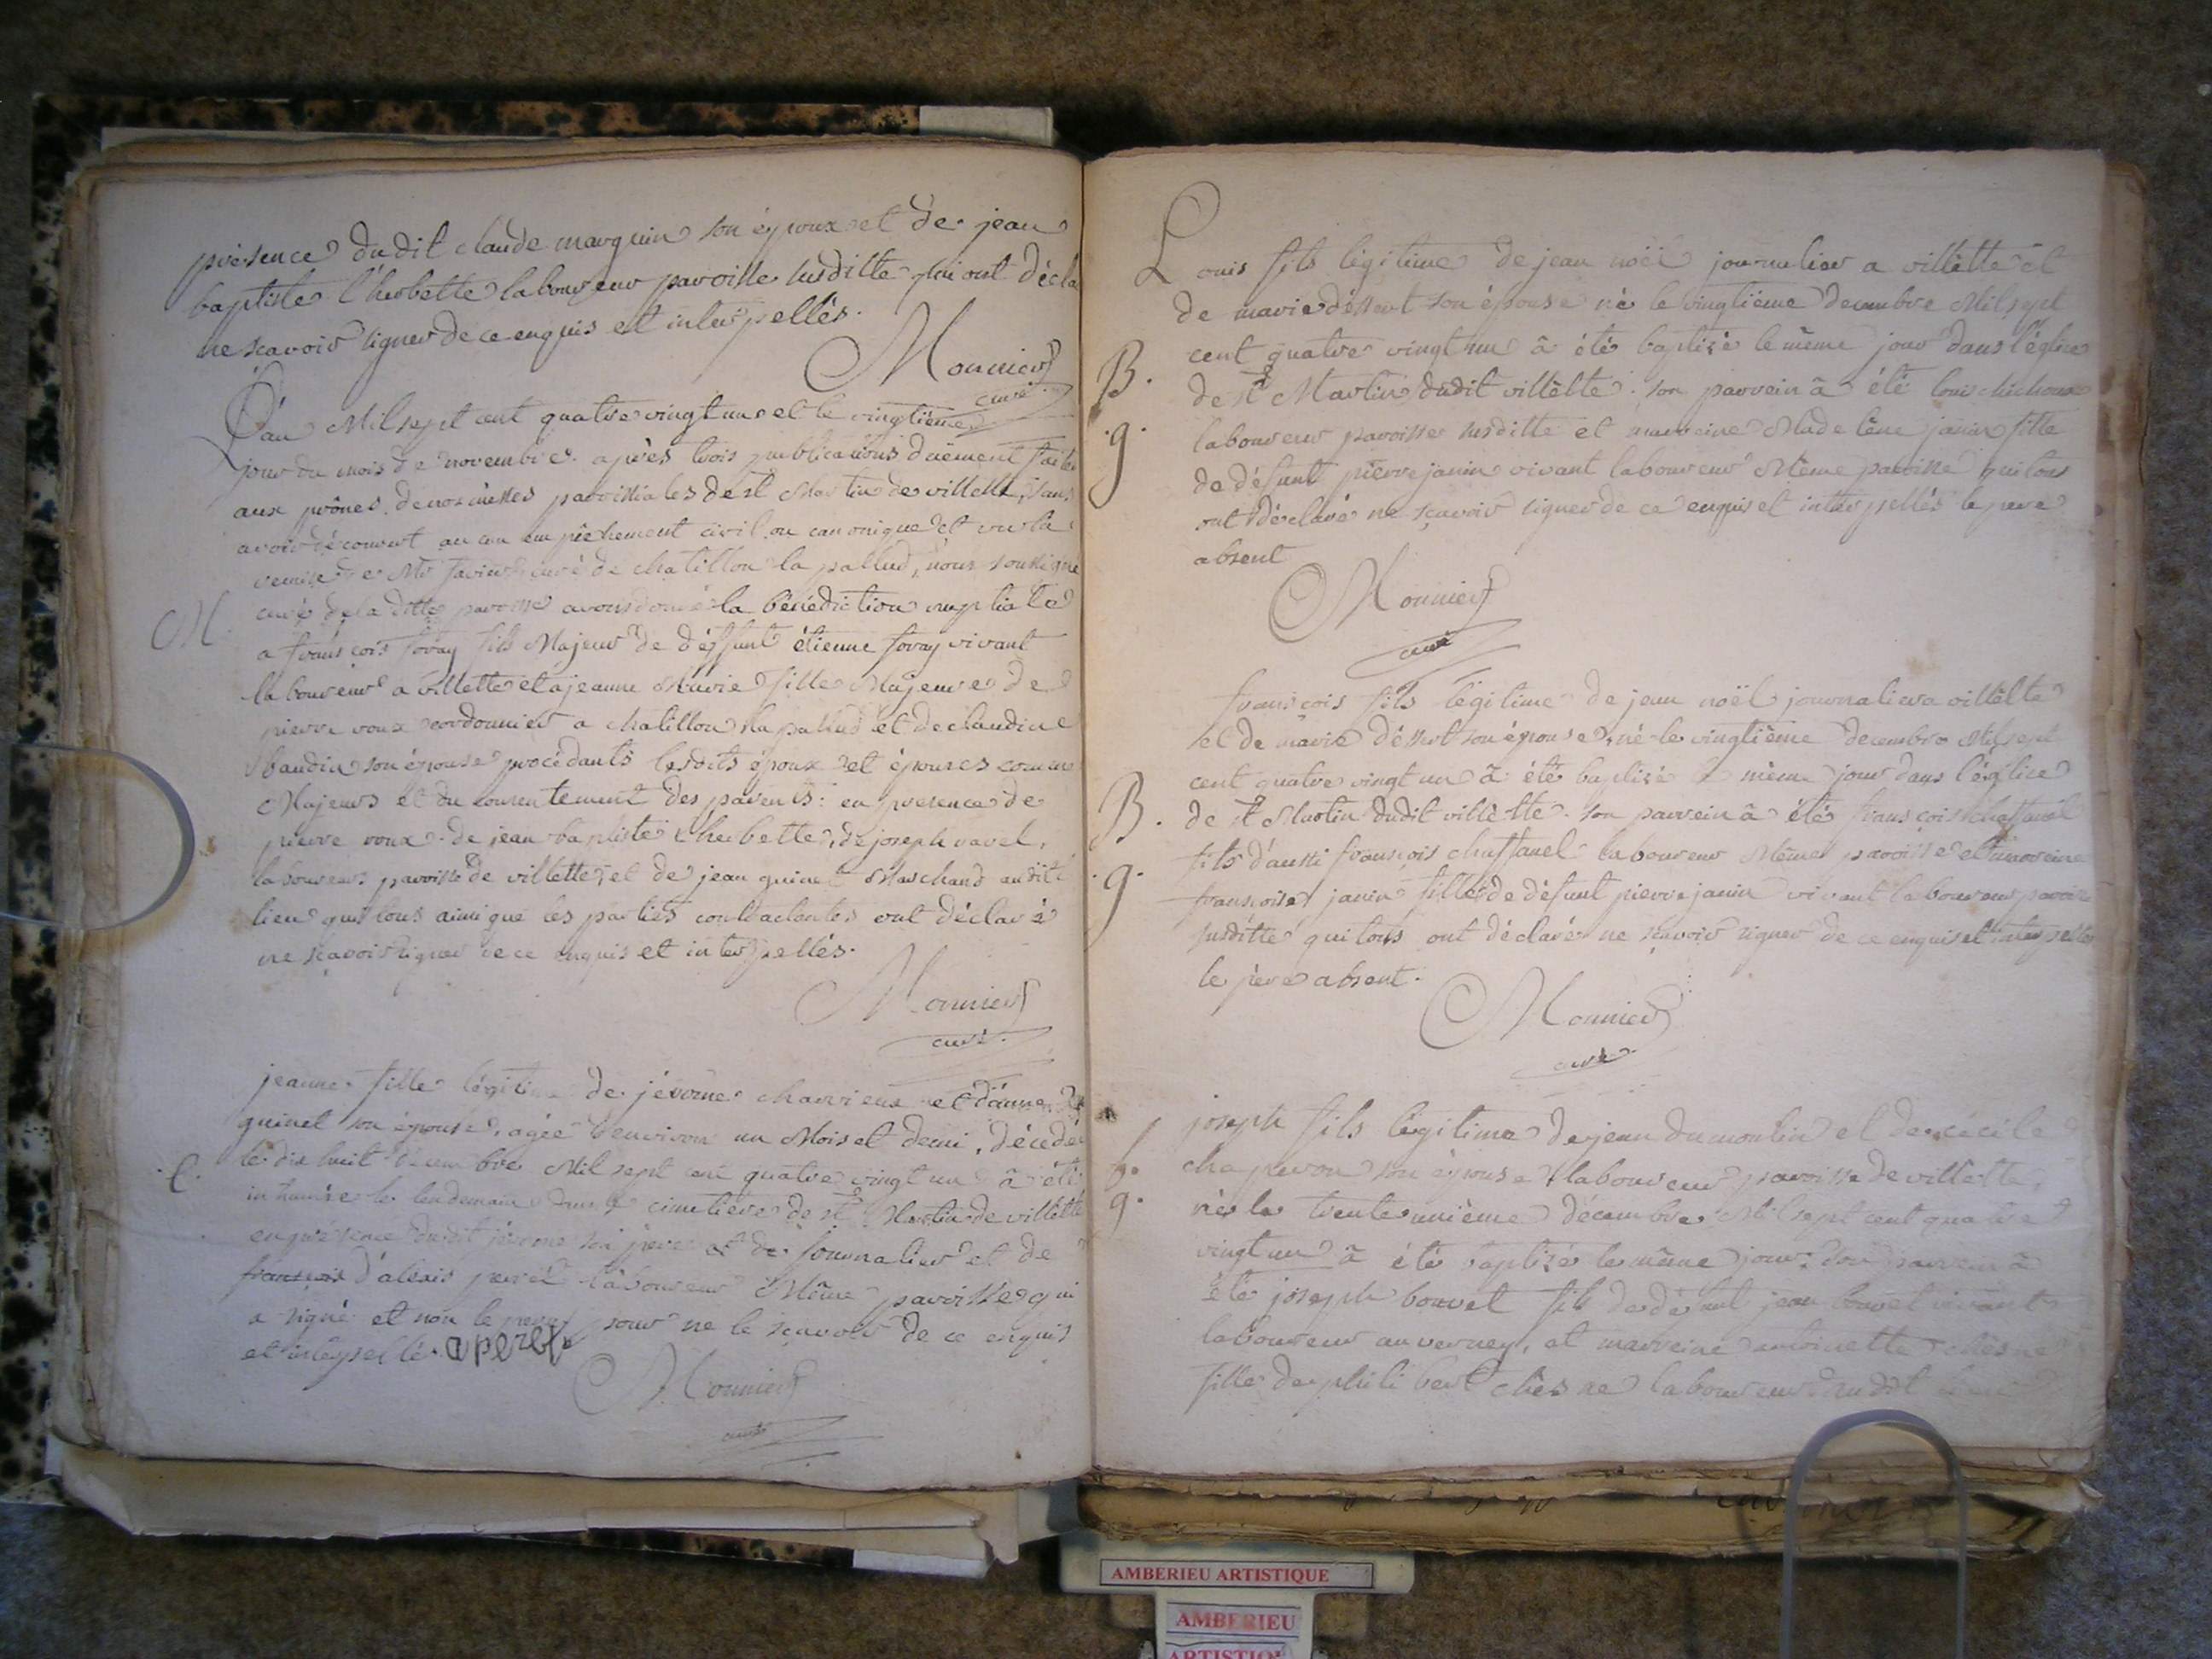 présence dudit claude marguin son époux et de jean
baptiste l'herbette laboureur paroisse susditte qui ont décla
ne scavoir signer de ce enquis et interpellés.
Monnier
curé
L'an Mil sept cent quatre vingt un et le vingtième
jour du mois de novembre. après trois publications duement faites
aux prônes de nos messes paroissiales de st Martin de villette, sans
avoir découvert aucun empêchement civil ou canonique et vu la
remise de Mr favier curé de chatillon la pallud, nous soussigné
curé de la ditte paroisse avons donné la bénédiction nuptiale
M.
a françois foray fils Majeur de déffunt étienne foray vivant
laboureur a villette et a jeanne Marie fille Majeure de
pierre roux cordonnier a chatillon la pallud et de claudine
baudin son épouse procédants lesdits époux et épouses comme
Majeurs et du consentement des parents: en présence de
pierre roux. de jean baptiste l'herbette, de joseph ravel,
laboureurs paroisse de villette, et de jean quinet Marchand audit
lieu qui tous ainsi que les parties contractantes ont déclaré
ne scavoir signer de ce enquis et interpellés.
Monnier
curé.
jeanne fille légitime de jérôme charvieux et d'anne
quinet son épouse, agée d'environ un Mois et demi, décédée
le dix huit décembre Mil sept cent quatre vingt un à été
inhumée le lendemain dans le cimetière de st Martin de villette
en présence dudit jérome son père et de journalier et de
françois d'alexis peret laboureur Même paroisse qui
a signé et non le père pour ne le sçavoir de ce enquis
et interpellé. a peret
Monnier
curé
Louis fils légitime de jean noël journalier a villette et
de marie déssert son épouse né le vingtième decembre Mil sept
cent quatre vingt un â été baptizé le même jour dans l'église
B.
de st Martin dudit villètte. son parrein â été louis
g.
laboureur paroisse susditte et marreine Madelêne janin fille
de défunt pierre janin vivant laboureur Même paroisse qui tous
ont déclaré ne sçavoir signer de ce enquis et interpellés le pere
absent
Monnier
curé
françois fils légitime de jean noël journalier a villètte
et de marie déssert son épouse, né le vingtième decembre Mil sept
cent quatre vingt un â été baptizé le même jour dans l'église
B.
de st Martin dudit villètte. son parrein â été françois chaffanel
g.
fils d'aussi françois chaffanel laboureur Même paroisse et marreine
françoise janin fille de défunt pierre janin vivant laboureur paroisse
susditte qui tous ont déclaré ne sçavoir signer de ce enquis et interpellés
le père absent.
Monnier
curé
joseph fils légitime de jean dumoulin et de cécile
chaperon son épouse laboureur paroisse de villette,
g.
né le trente unième décembre Mil sept cent quatre
vingt un â été baptizé le même jour: son parrein â
été joseph bonvet fils de défunt jean bonvet vivant
laboureur au verney, et marreine antoinette chêsne
fille de philibert chêsne laboureur audit
AMBERIEU ARTISTIQUE
AMBERIEU
ARTISTIQUE